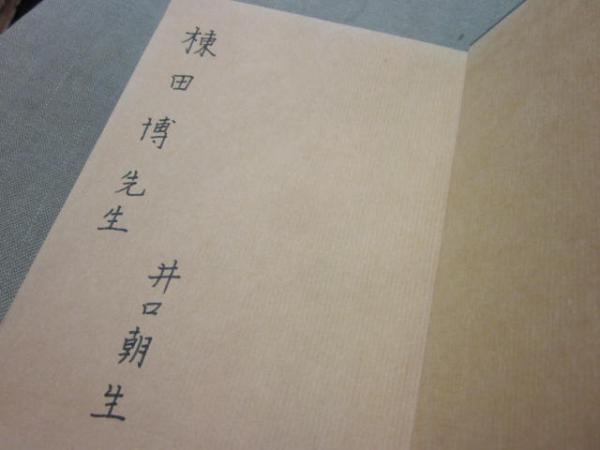 棟田博先生
井口朝生